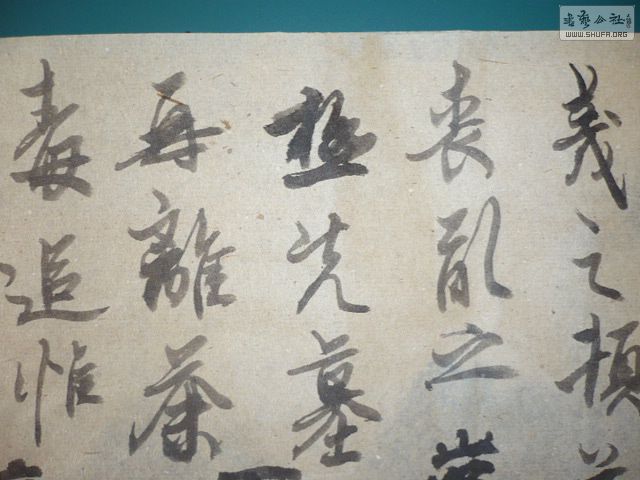 書藝公社
WWW.SHUFA.ORG
羲之頓
喪亂之
極先墓
再離荼
毒追惟